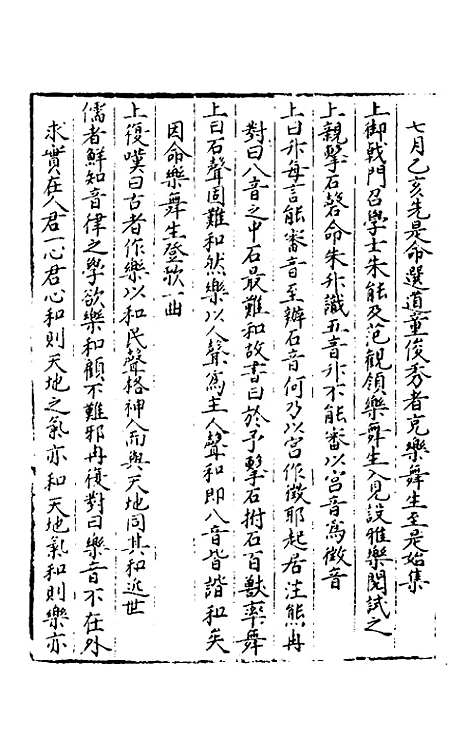 七月乙亥先是命選道童俊秀者充樂舞生至是始集
上御戟門召學士朱升及范觀領樂舞生入見設雅樂閱試之
上親擊石磬命朱升識五音升不能審以宮音為徵音
上曰升每言能審音至辨石音何乃以宮作徵耶起居注熊鼎
對曰八音之中石最難和故書曰於予擊石拊石百獸率舞
上曰石聲固難和然樂以人聲為主人聲和即八音皆諧和矣
因命樂舞生登歌一曲
上復嘆曰古者作樂以和民聲格神人而與天地同其和近世
儒者鮮知音律之學欲樂和顧不難邪鼎復對曰樂音不在外
求實在人君一心君心和則天地之氣亦和天地氣和則樂亦